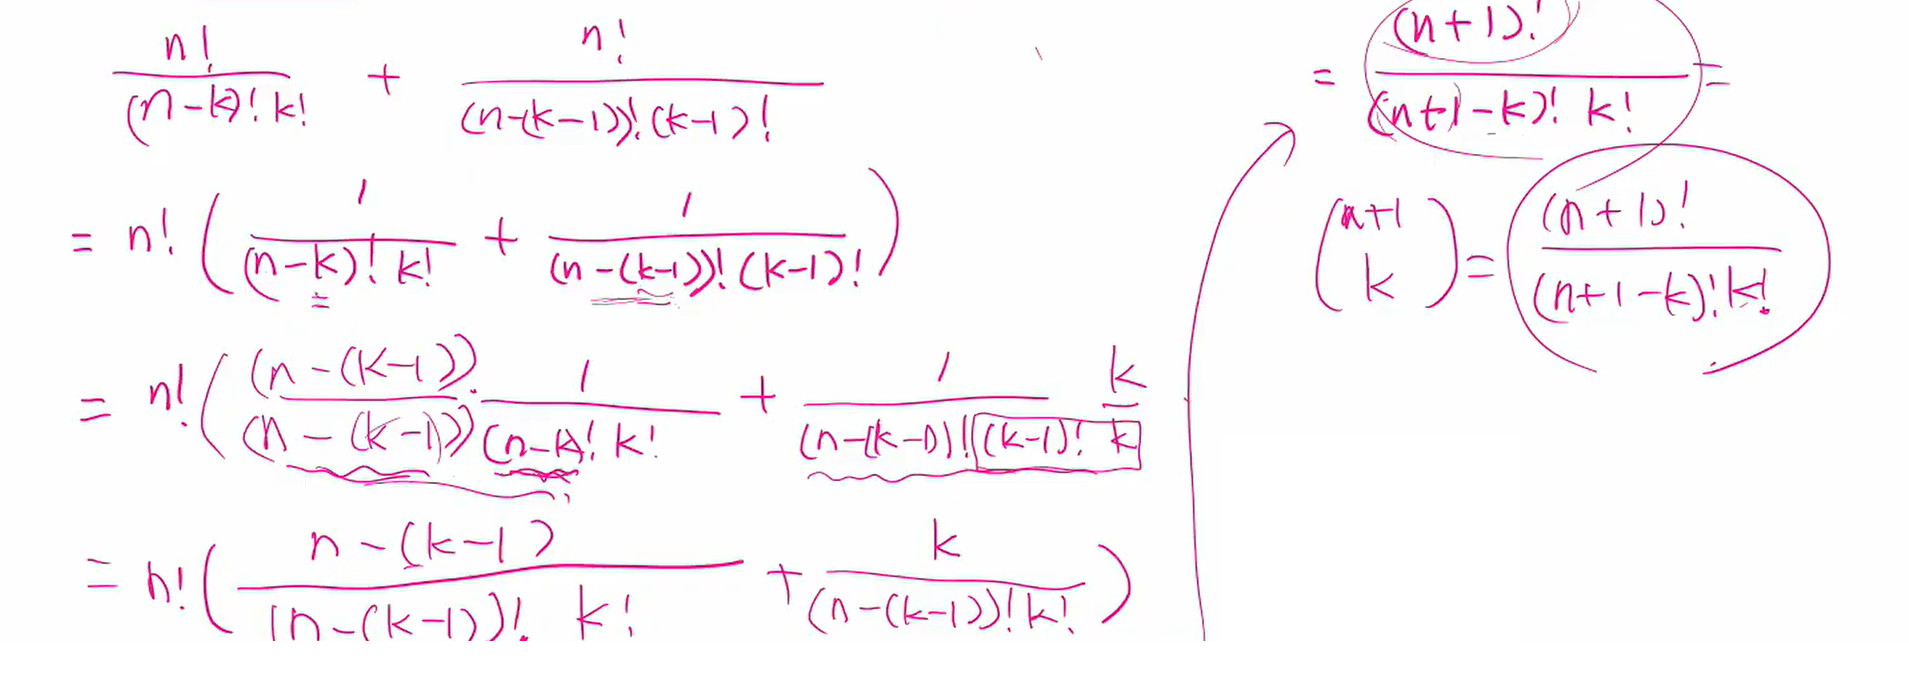 n!/((n-k)! k!) + n!/((n-(k-1))! (k-1)!)
= n! ( 1/((n-k)! k!) + 1/((n-(k-1))! (k-1)!) )
= n! ( (n-(k-1))/(n-(k-1)) · 1/((n-k)! k!) + 1/((n-(k-1))! (k-1)!) k/k
= n! ( n-(k-1)/((n-(k-1))! k!) + k/((n-(k-1))! k!) )
= (n+1)!/((n+1-k)! k!) =
(n+1 k) = (n+1)!/((n+1-k)! k!)